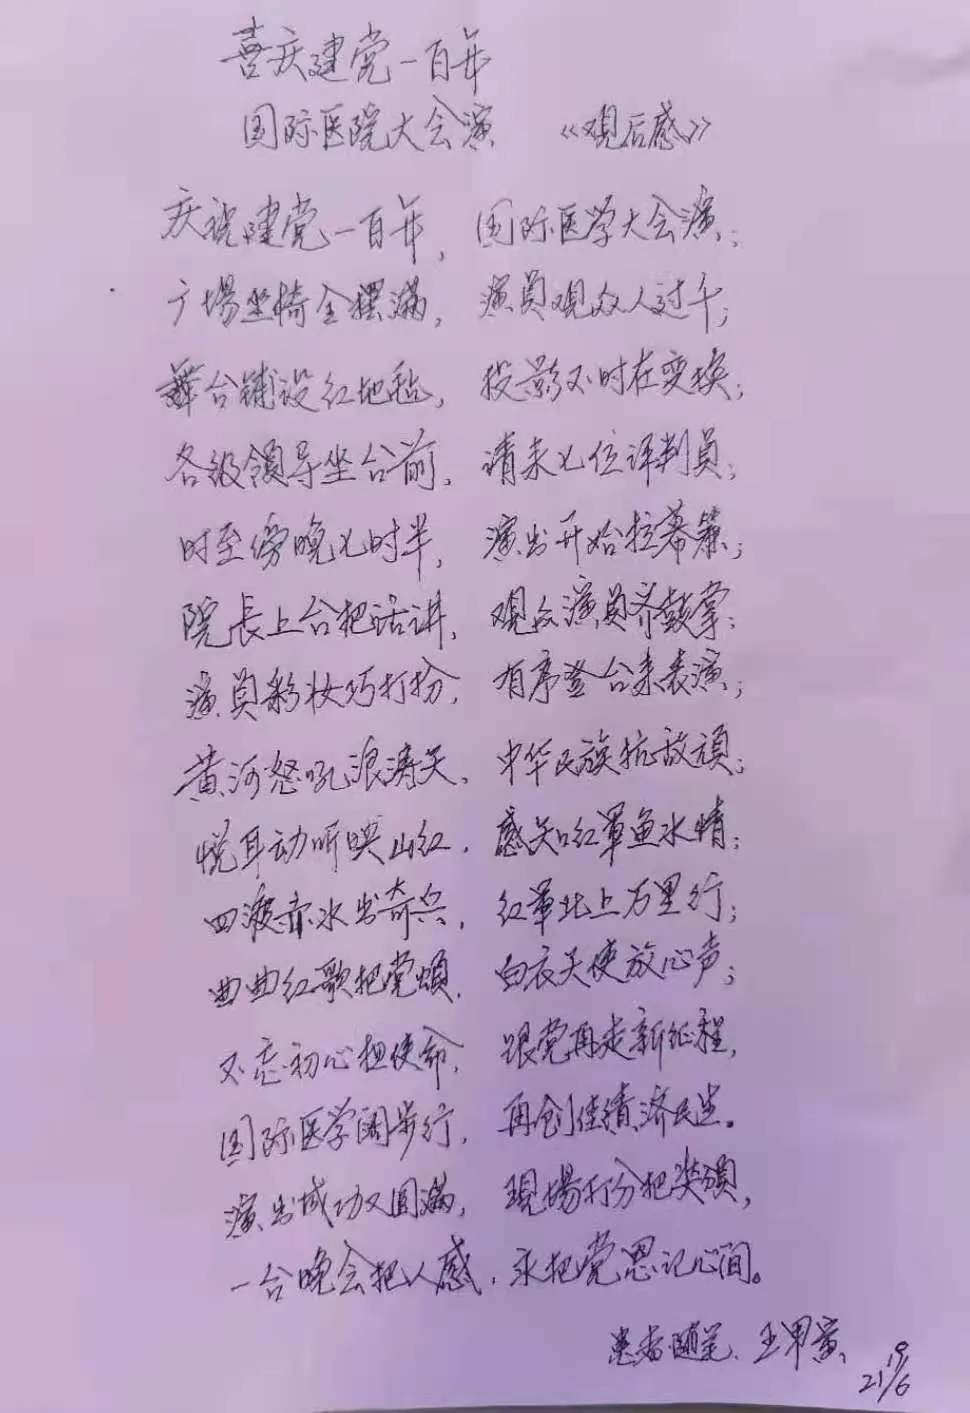 喜庆建党一百年
国际医院大会演 《观后感》
庆祝建党一百年, 国际医学大会演;
广場坐椅全摆满, 演员观众人过千;
舞台铺设红地毯, 投影不时在变换;
各级領导坐台前, 请来七位评判员;
时至傍晚七时半, 演出开始拉幕簾;
院長上台把话讲, 观众演员齐鼓掌;
演員彩妆巧打扮, 有序登台来表演;
黄河怒吼浪涛天, 中华民族抗敌頑;
悦耳动听映山红, 感知红軍鱼水情;
四渡赤水出奇兵, 红軍北上万里行;
曲曲红歌把党頌, 白衣天使放心声;
不忘初心担使命, 跟党再走新征程,
国际医学阔步行, 再创佳绩济民生。
演出成功又圆满, 現場打分把奖頒,
一台晚会把人感, 永把党恩记心间。
患者随笔、王甲寅、
21 19/6